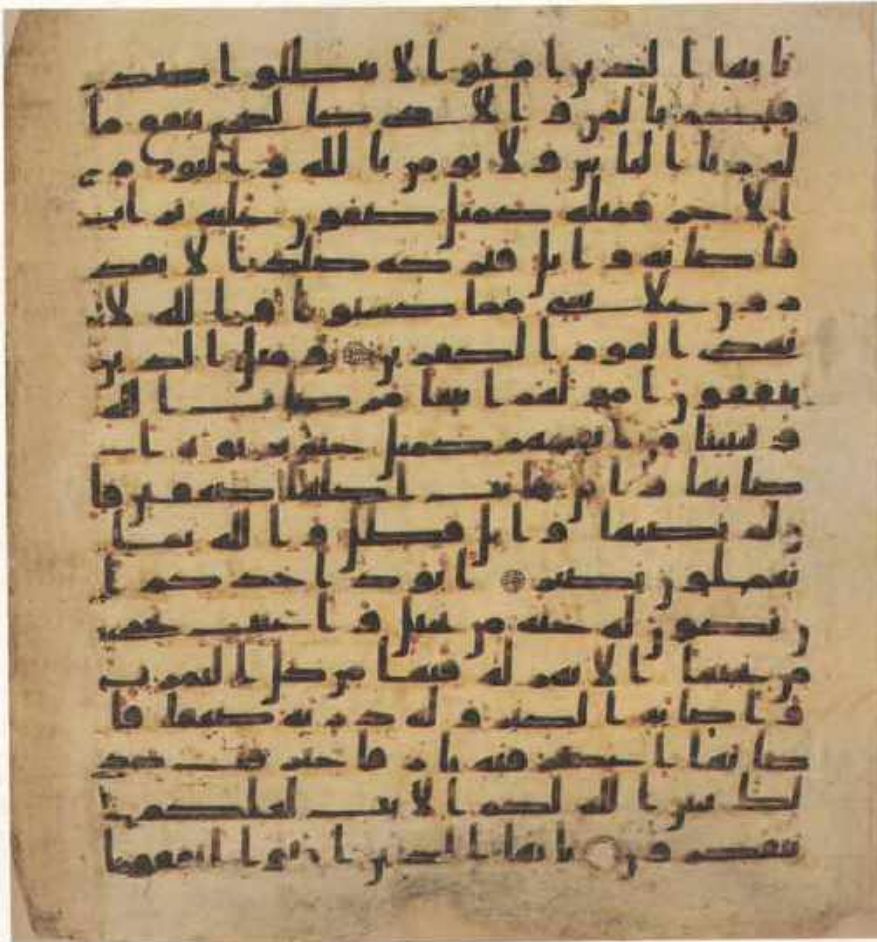 يايها الذين امنوا لا تبطلوا صد
قتكم بالمن والاذى كالذي ينفق ما
له ريا الناس ولا يومن بالله واليوم
الاخر فمثله كمثل صفون عليه تراب
فاصابه وابل فتركه صلدا لا يقد
رون على شي مما كسبوا والله لا
يهدي القوم الكفرين ومثل الذين
ينفقون امولهم ابتغا مرضات الله
وتثبيتا من انفسهم كمثل جنة بربوة ا
صابها وابل فاتت اكلها ضعفين فا
ن لم يصبها وابل فطل والله بما
تعملون بصير ايود احدكم ا
ن تكون له جنة من نخيل واعنب تجري
من تحتها الانهر له فيها من كل الثمرت
واصابه الكبر وله ذرية ضعفا فا
صابها اعصار فيه نار فاحترقت كذ
لك يبين الله لكم الايت لعلكم
تتفكرون يايها الذين امنوا انفقوا